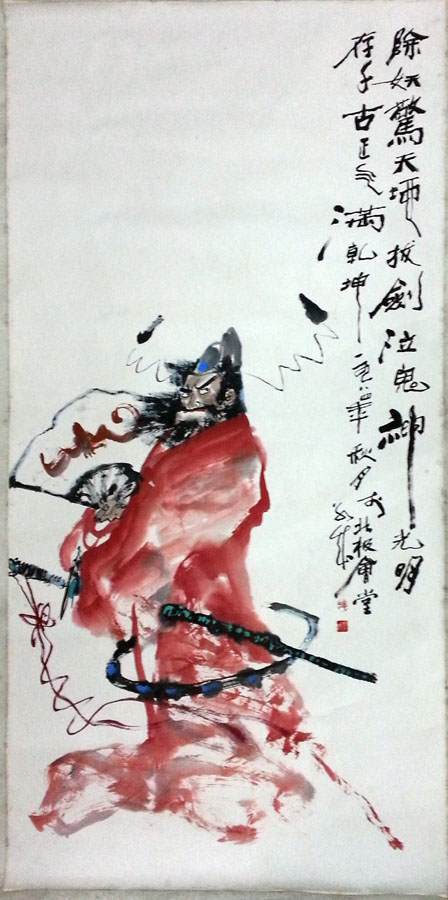 除妖驚天地拔劍泣鬼神光明
存千古正氣滿乾坤 年秋月於北板會堂